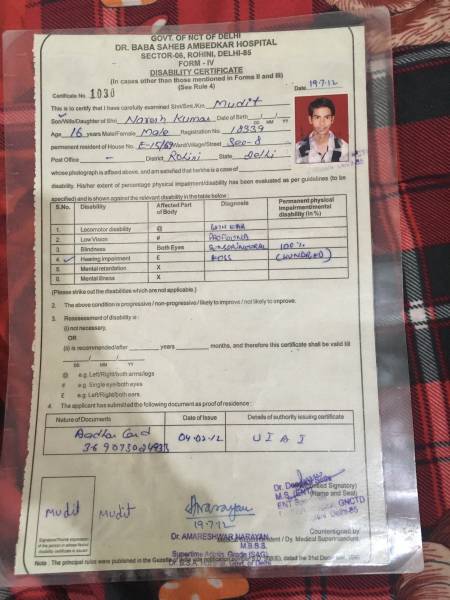 GOVT. OF NCT OF DELHI
DR. BABA SAHEB AMBEDKAR HOSPITAL
SECTOR-06, ROHINI, DELHI-85
FORM - IV
DISABILITY CERTIFICATE
(In cases other than those mentioned in Forms II and III)
(See Rule 4)
Certificate No. 1030 Date 19.7.12
This is to certify that I have carefully examined Shri/Smt./Km. Mudit
Son/Wife/Daughter of Shri Naresh Kumar Date of Birth
DD MM YY
Age 16 years Male/Female Male Registration No. 18339
permanent resident of House No. E-15/69 Ward/Village/Street Sec-8
Post Office District Rohini State Delhi
whose photograph is affixed above, and am satisfied that he/she is a case of
disability. His/her extent of percentage physical impairment/disability has been evaluated as per guidelines (to be
specified) and is shown against the relevant disability in the table below :
S.No. Disability Affected Part of Body Diagnosis Permanent physical impairment/mental disability (in %)
1. Locomotor disability @ BOTH EAR
2. Low Vision # PROFOUND
3. Blindness Both Eyes SENSORINEURAL 100%
4. Hearing impairment £ LOSS (HUNDRED)
5. Mental retardation X
6. Mental illness X
(Please strike out the disabilities which are not applicable.)
2. The above condition is progressive / non-progressive / likely to improve / not likely to improve.
3. Reassessment of disability is :
(i) not necessary,
OR
(ii) is recommended/after years months, and therefore this certificate shall be valid till
DD MM YY
@ e.g. Left/Right/both arms/legs
# e.g. Single eye/both eyes
£ e.g. Left/Right/both ears.
4. The applicant has submitted the following document as proof of residence :
Nature of Documents Date of Issue Details of authority issuing certificate
Aadhar Card 04-02-12 U I A I
Mudit Mudit
19.7.12
M.S. (ENT) (Name and Seal)
GNCTD
Delhi-85
Signature/thumb impression
of the person in whose favour
disability certificate is issued
Dr. AMARESHWAR NARAYAN
M.B.B.S.
Countersigned by
/ Dy. Medical Superintendent
Note : The principal rules were published in the Gazette of India
dated the 31st December,